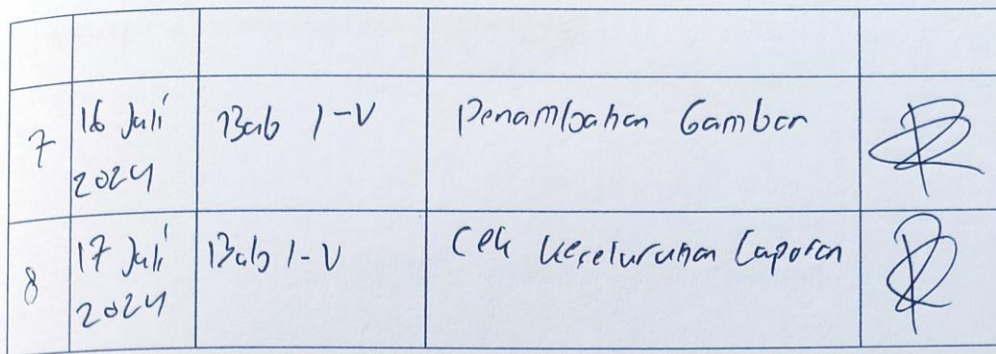 7 16 Juli 2024 Bab I-V Penambahan Gambar
8 17 Juli 2024 Bab I-V Cek keseluruhan Laporan